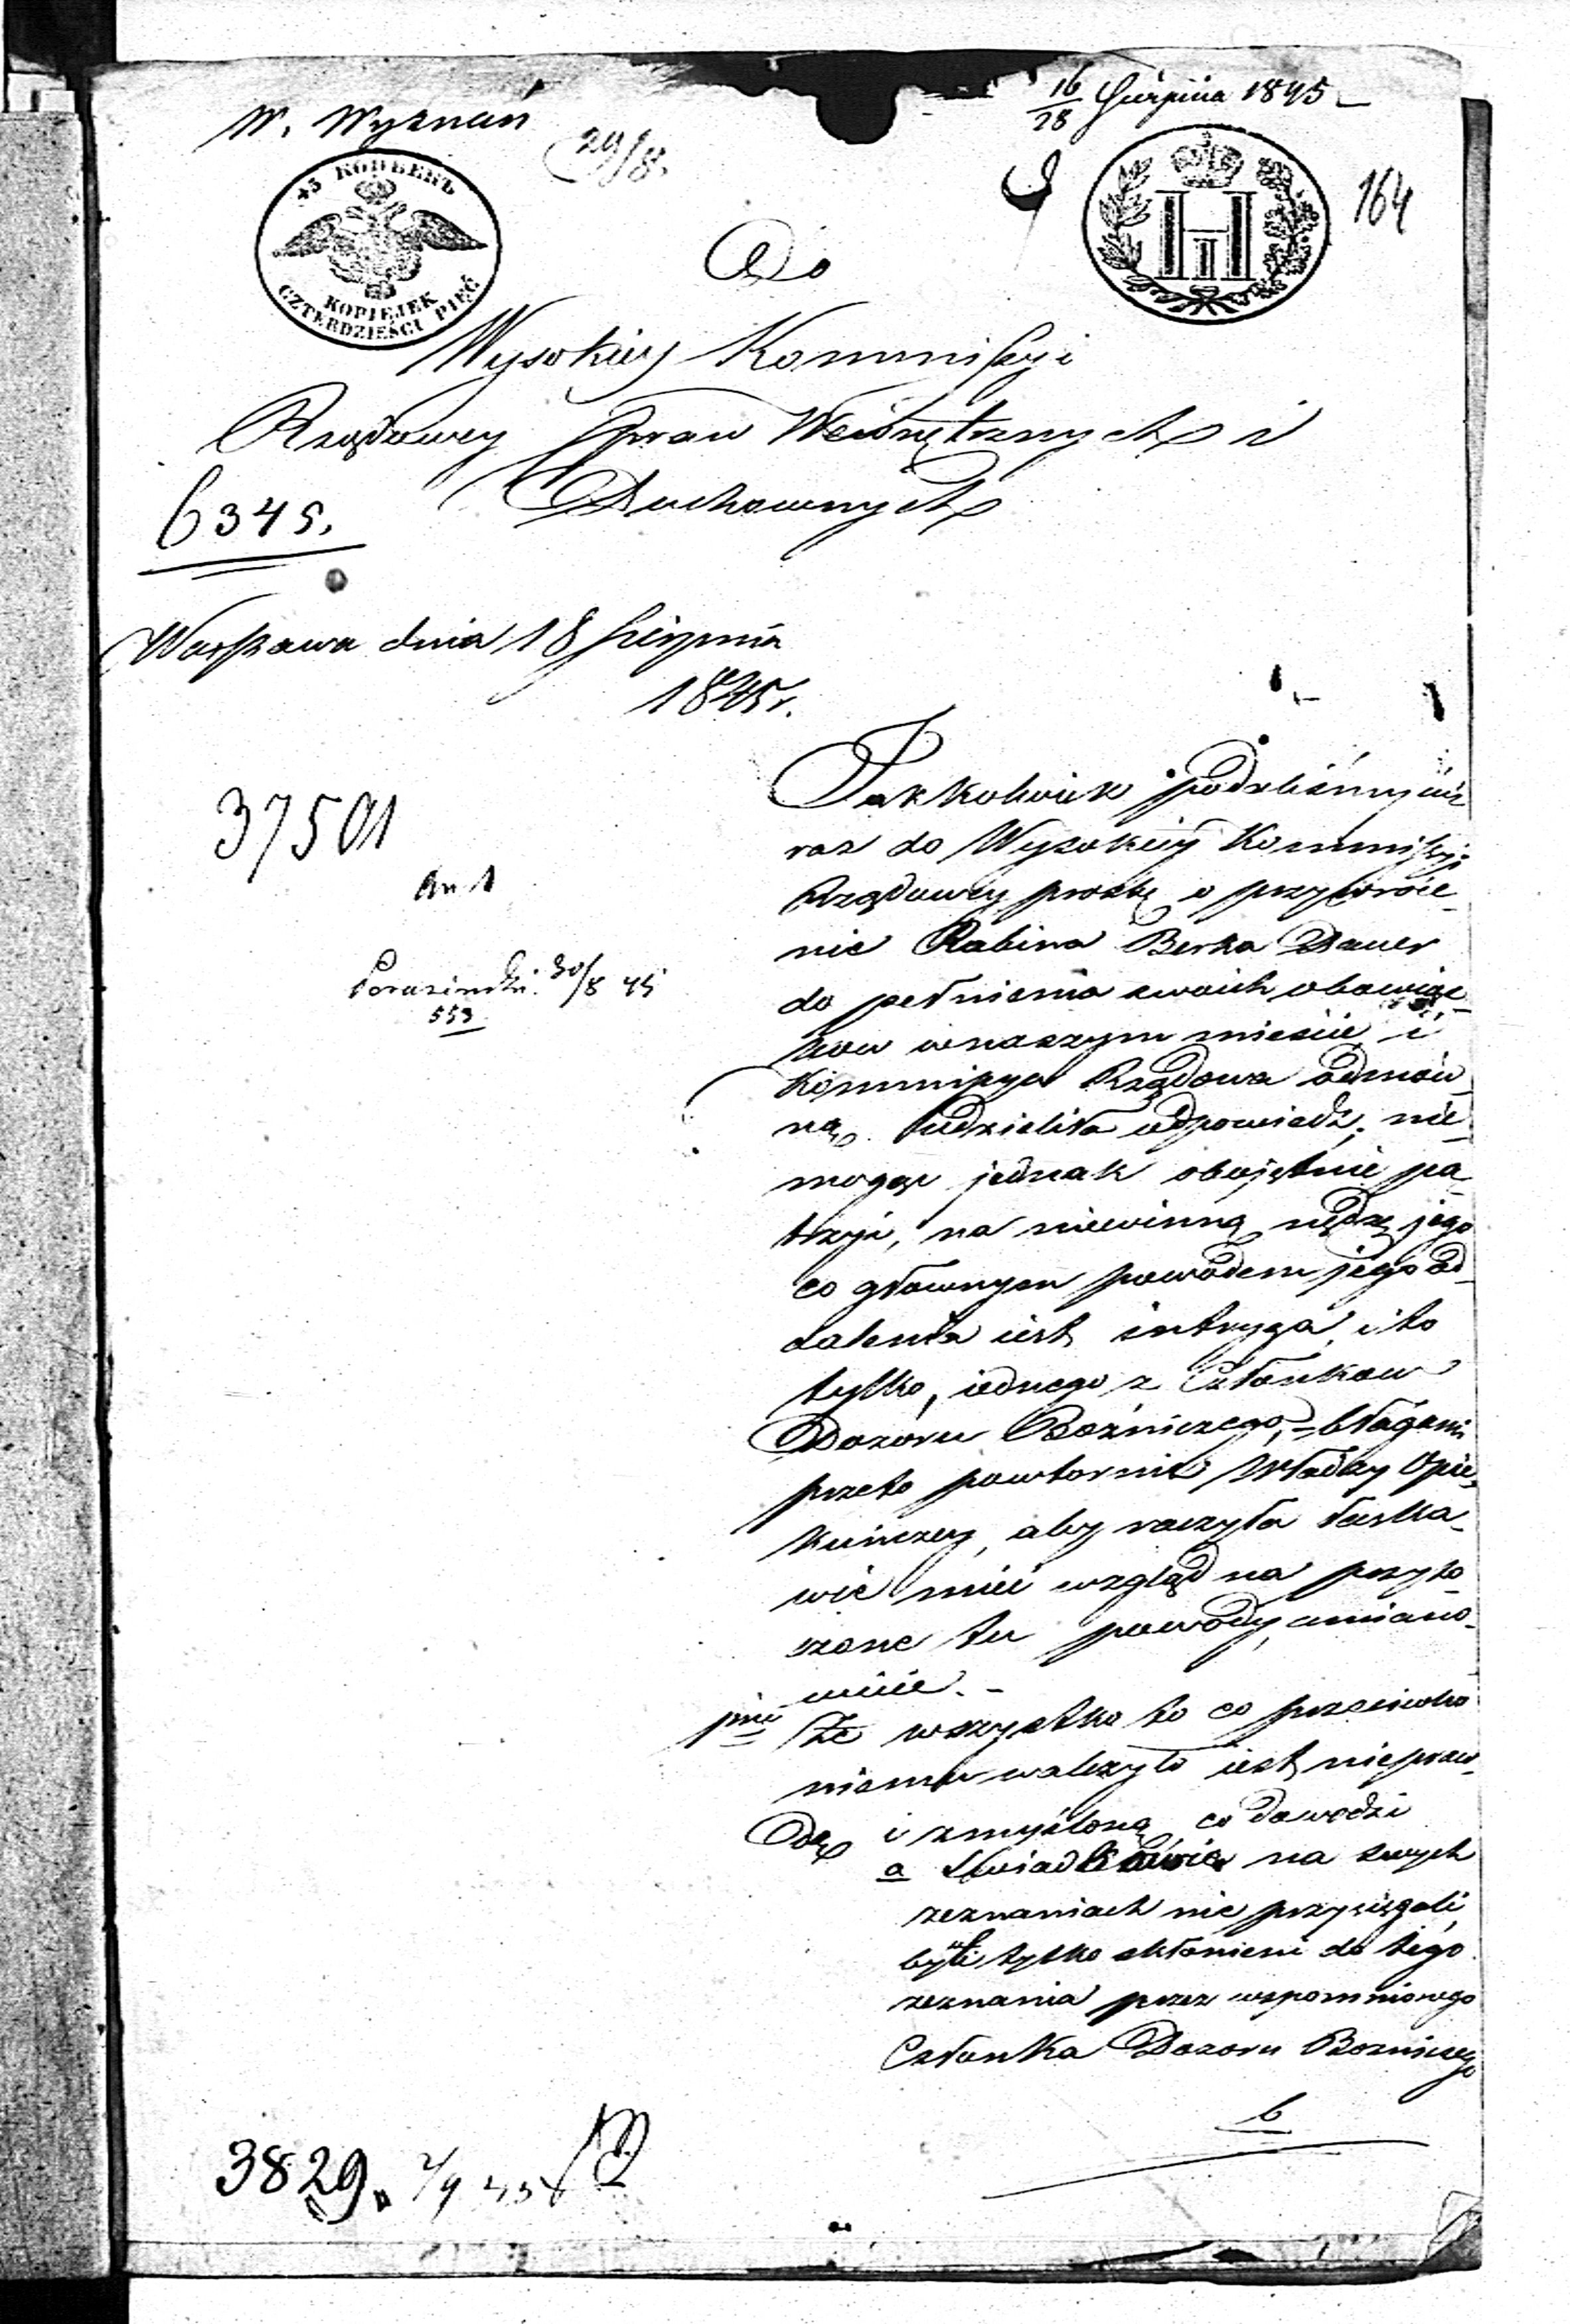 W. Wyznań
29/8.
16/28 Sierpnia 1845
164
45 КОПѢЕКЪ
KOPIEJEK
CZTERDZIEŚCI PIĘĆ
Do
Wysokiey Kommissyi
Rządowey Spraw Wewnętrznych i
Duchownych
6345.
Warszawa dnia 18 Sierpnia
1845 r.
37501
30/8 45
553
Jakkolwiek podaliśmy iuż
raz do Wysokiey Kommissyi
Rządowey prozbę o przywróce-
nie Rabina Berka Bauer
do pełnienia swoich obowiąz-
kow w naszym mieście, i
Kommissya Rządowa odmow-
ną udzieliła odpowiedź, nie-
mogąc jednak obojętnie pa-
trzyć, na niewinną nędzę jego
co głownym powodem jego od-
dalenia iest intryga, i to
tylko, iednego z Członkow
Dozoru Bożniczego, - błagamy
przeto powtornie Władzy Opie-
kuńczey, aby raczyła łaska-
wie mieć wzgląd na przyto-
czone tu powody, amiano-
wicie. -
1mo Że wszystko to co przeciwko
niemu walczyło iest nie praw-
dą i zmyśloną co dowodzi
a Świadkowie na swych
zeznaniach nie przysięgali,
byli tylko skłonieni do tego
zeznania przez wspomnionego
Członka Dozoru Bozniczego
b
3829. 2/9 45